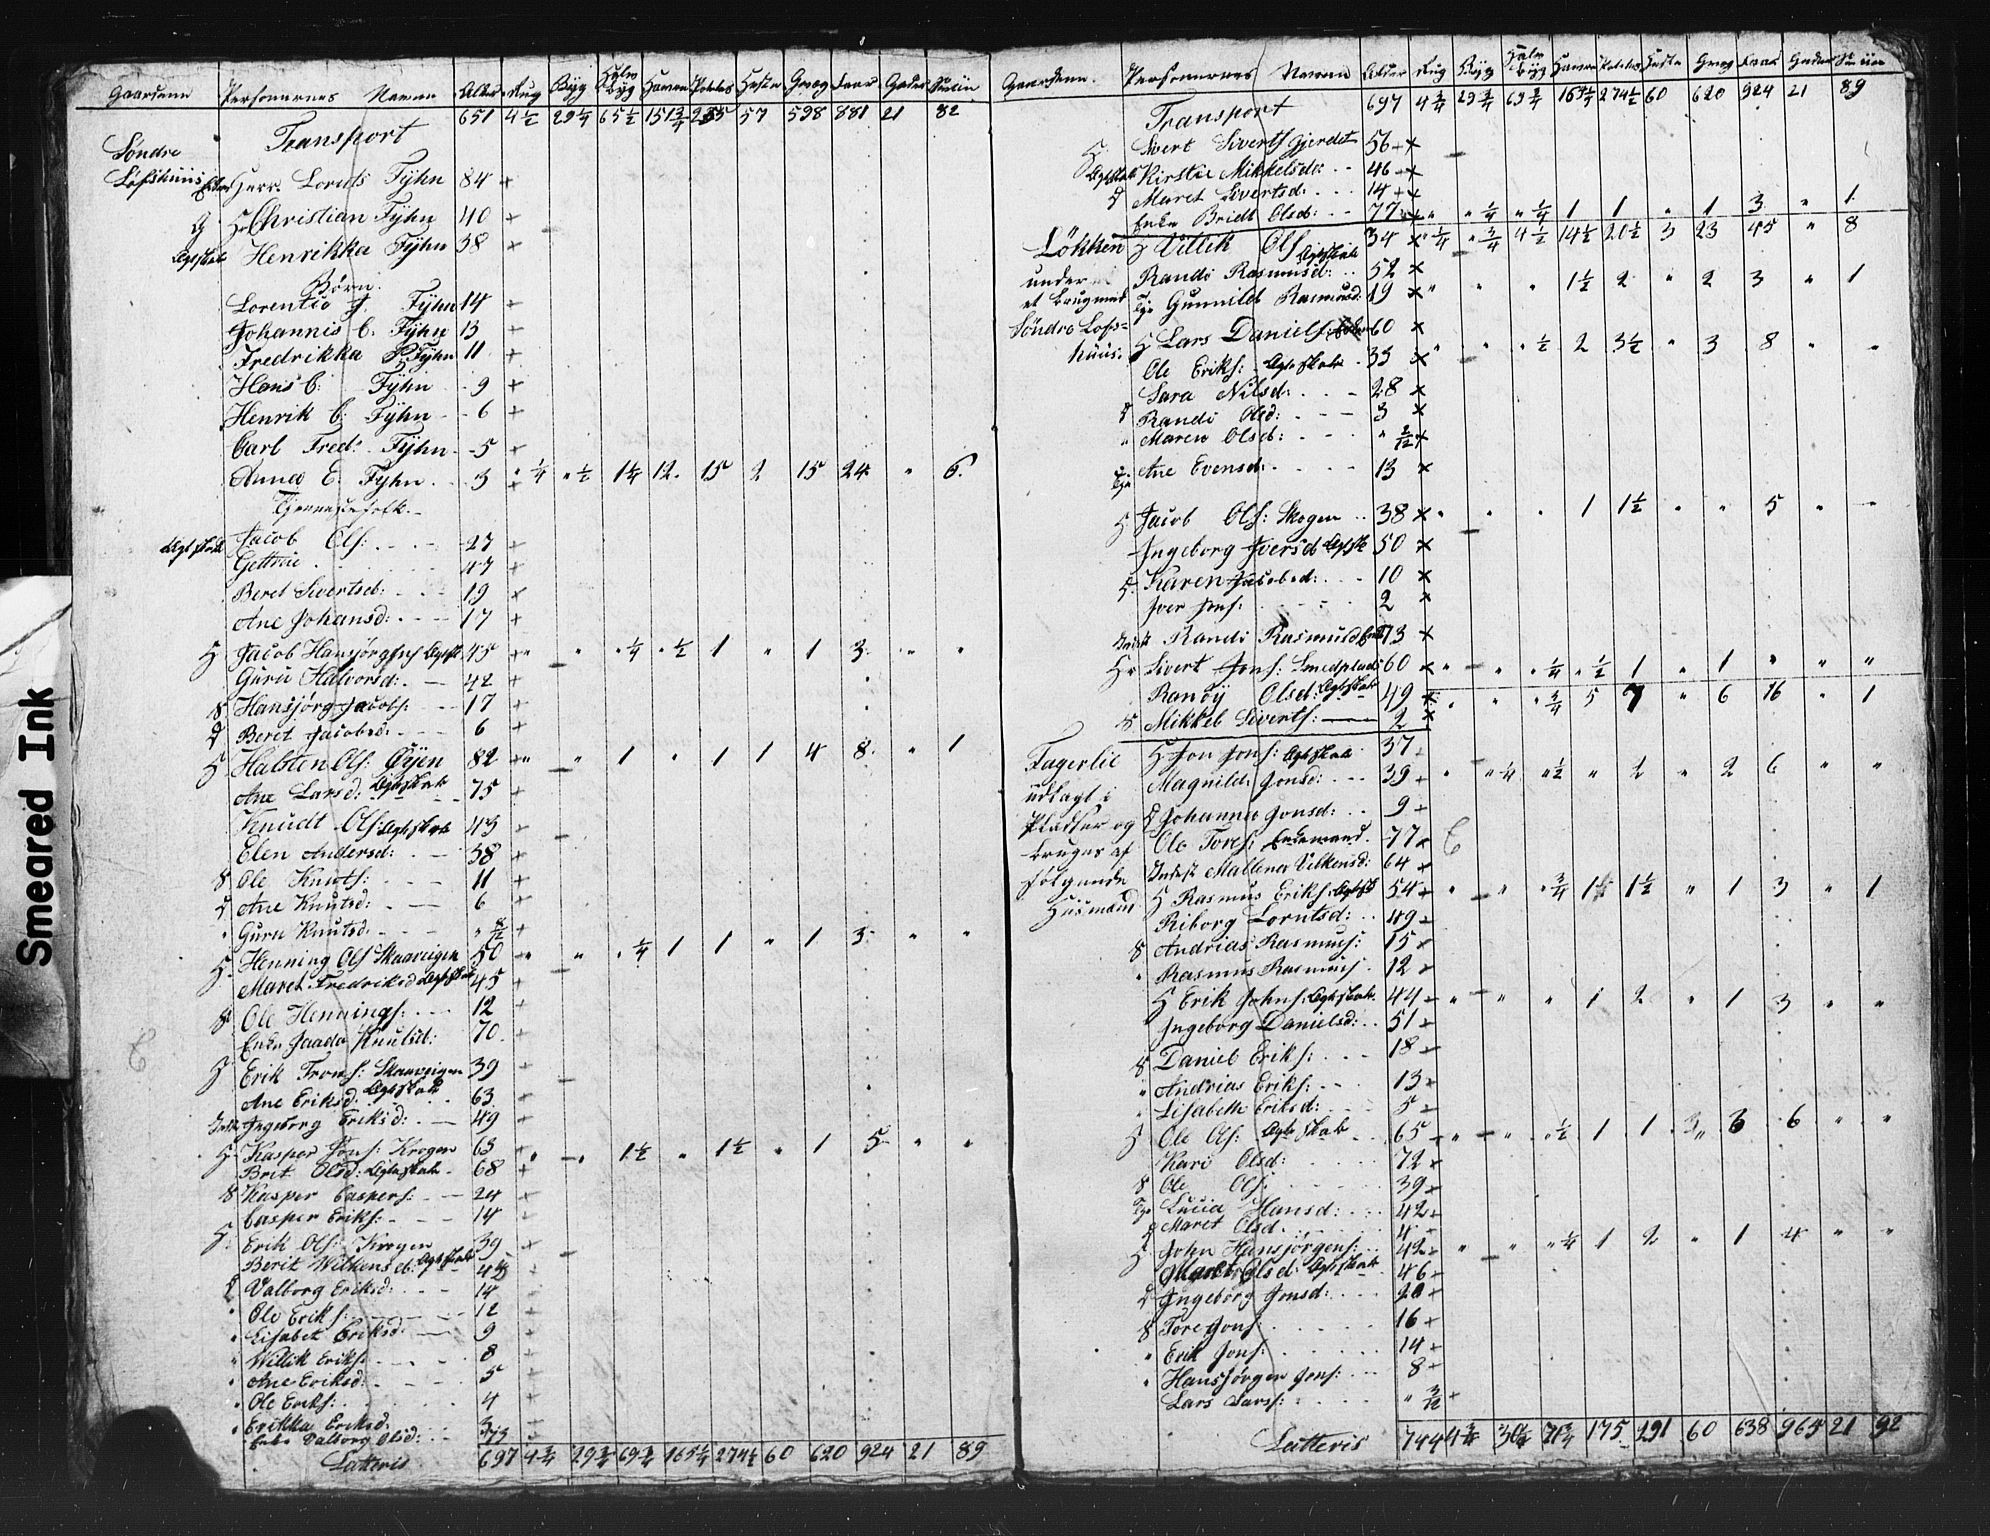 Smeared Ink
Gaardene Personernes Navne Alder Rug Byg Halv Byg Havre Potetes Heste Qvæg Faar Geder Sviin
Transport 651 4 1/2 29 1/4 65 1/2 151 3/4 255 57 598 881 21 82
Søndre
Lofshuus Herr Lornts Tyhn 84 +
H Christian Tyhn 40 +
Egteskab Henrikka Tyhn 38 +
Børn
Lorentio J Tyhn 14 +
Johannis C. Tyhn 13 +
Fredrikka Tyhn 11 +
Hans C: Tyhn 9 +
Henrik C: Tyhn 6 +
Carl Fred: Tyhn 5 +
Anna E. Tyhn 3 + 1/4 " 1/2 1 1/4 12 15 2 15 24 " 6.
Tjenestefolk
Egteskab Jacob Ols: 27 +
Gettrie 47 +
Beret Sivertsd: 19 +
Ane Johansd: 17 +
H Jacob Hansjørgs Egtesk 45 + " " " 1/4 " 1/2 1 " 1 3 " "
Guru Halvorsd: 42 +
S Hansjørg Jacobs: 17 +
D Beret Jacobsd: 6 +
H Halsten Ols: Øyen 82 + " " 1 " 1 1 4 8 " 1
Ane Larsd: Egteskab 75 +
Knudt Ols: Egteskab 43 +
Elen Andersd: 38 +
S Ole Knuts: 11 +
D Ane Knutsd: 6 +
" Guru Knutsd. " 8/12 +
H Henning Ols Skaaveigen 50 + " " " 1/4 1 1 " 1 3 " "
Maret Fredriksd Egteskab 45 +
S Ole Hennings: 12 +
Enke Knutsd: 70
H Erik Trons: Skaaveigen 39 +
Ane Eriksd: Egteskab 63 +
Inderst Ingeborg Eriksd: 49 +
H Kasper Jons: Krogen 63 + " " 1 1/2 " 1 1/2 " 1 5 " "
Brit Olsd: Egteskab 68 +
S Kasper Caspers: 24 +
Casper Eriks: 14 +
H Erik Ols: Krogen 39 +
Berit Wilkensd: Egteskab
D Valborg Eriksd: 14 +
" Ole Eriks: 12 +
" Lisabet Eriksd: 9 +
" Willik Eriks: 8 +
" Ane Eriksd: 5 +
" Ole Eriks: 4 +
" Erikka Eriksd. 3 +
Enke Valborg Olsd: 73 +
Latteris 697 4 3/4 29 3/4 69 3/4 165 1/4 274 1/2 60 620 924 21 89
Gaardene. Personernes Navne Alder Rug Byg Halv Byg Havre Potetes Heste Qvæg Faar Geder Sviin
Transport 697 4 3/4 29 3/4 69 3/4 165 1/4 274 1/2 60 620 924 21 89
H Sivert Siverts Gjerdet 56 + x
Egteskab Kirstie Mikkelsdr: 46 + x
D Maret Sivertsd: 14 + x
Enke Bridt Olsd: 77 x " " 1/4 " 1/4 1 1 " 1 3 " 1
Løkken H Villik Ols 34 x " 1/4 " 3/4 4 1/2 14 1/2 20 1/2 3 23 45 " 8
under Randi Rasmusd: Egteskab 52 x
et Brug med Tje Gunnild Rasmusd: 19 x " " " 1 1/2 2 " 2 3 " 1
Søndre Lofs= H Lars Daniels: 60 x
huus. Ole Eriks: Egteskab 33 x " " " 1/2 2 3 1/2 " 3 8 " "
Sara Nilsd: 28 x
D Randi Olsd: 3 x
" Maren Olsd: " 2/12 x
Tje Ane Evensd: 13 x
H Jacob Ols: Skogen 38 x " " " 1 1 1/2 " " 5 "
Ingeborg Iversd Egtesk 50 x
Karen Jacobsd: 10 x
S. Iver Jons: 2 x
Inderst Randi Rasmusd 73 x
H Sivert Jons: Smedplads 60 x " " 1/4 " 1/2 1 " 1 " " "
Ranøy Olsd: Egteskab 49 x " " 3/4 5 7 " 6 16 " 1
S Mikkel Siverts: 2 x
Fagerlie H Jon Jons: Egteskab 37
udlagt i Magnild Jonsd: 39 + " " 1/4 " 1/2 " 2 " 2 6 " "
Pladser og D Johanna Jonsd: 9 +
bruges af Ole Tores: Enkemand. 77 x
følgende Inderst Mallena Vilkensd: 64 +
Husmænd H Rasmus Eriks: Egtesk 54 + " " " 3/4 1 1/2 1 1/2 " 1 3 " 1
Riborg Lorntsd: 49 +
S Andrias Rasmus: 15 +
" Rasmus Rasmus: 12 +
H Erik Johns: Egteskab. 44 + " " " 1 2 " 1 3 " "
Ingeborg Danielsd: 51 +
S Daniel Eriks: 18 +
" Andrias Eriks: 13 +
" Lisabeth Eriksd: 5 +
H Ole Ols: Egteskab 65 + " " " 1/2 1 1 3 6 " "
Kari Olsd: 72 +
S Ole Ols: 39 +
Tje Lucia Hansd: 42 +
D Maret Olsd 4 +
H John Hansjørgens: 42 + " " " 1/4 1 2 " 1 4 " "
Olsd: Egteskab 46 +
D Ingeborg Jonsd: 20 +
S Tore Jons: 16 +
" Erik Jons: 14 +
" Hansjørgen Jons: 8 +
Lars Larss: " 3/12 +
Latteris 744 4 3/4 30 1/4 71 3/4 175 291 60 638 965 21 92